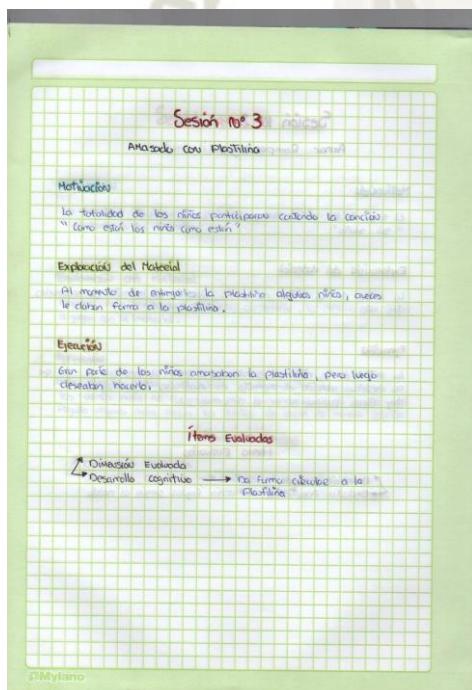 Sesión nº 3
Amasado con Plastilina
Motivación
La totalidad de los niños participaron cantando la canción
"Como están los niños como están"
Exploración del Material
Al momento de entregarles la plastilina algunos niños, aveces
le daban forma a la plastilina.
Ejecución
Gran parte de los niños amasaban la plastilina, pero luego
deseaban hacerlo.
Ítems Evaluados
Dimensión Evaluada
Desarrollo cognitivo → Da forma circular a la
Plastilina
Mylano